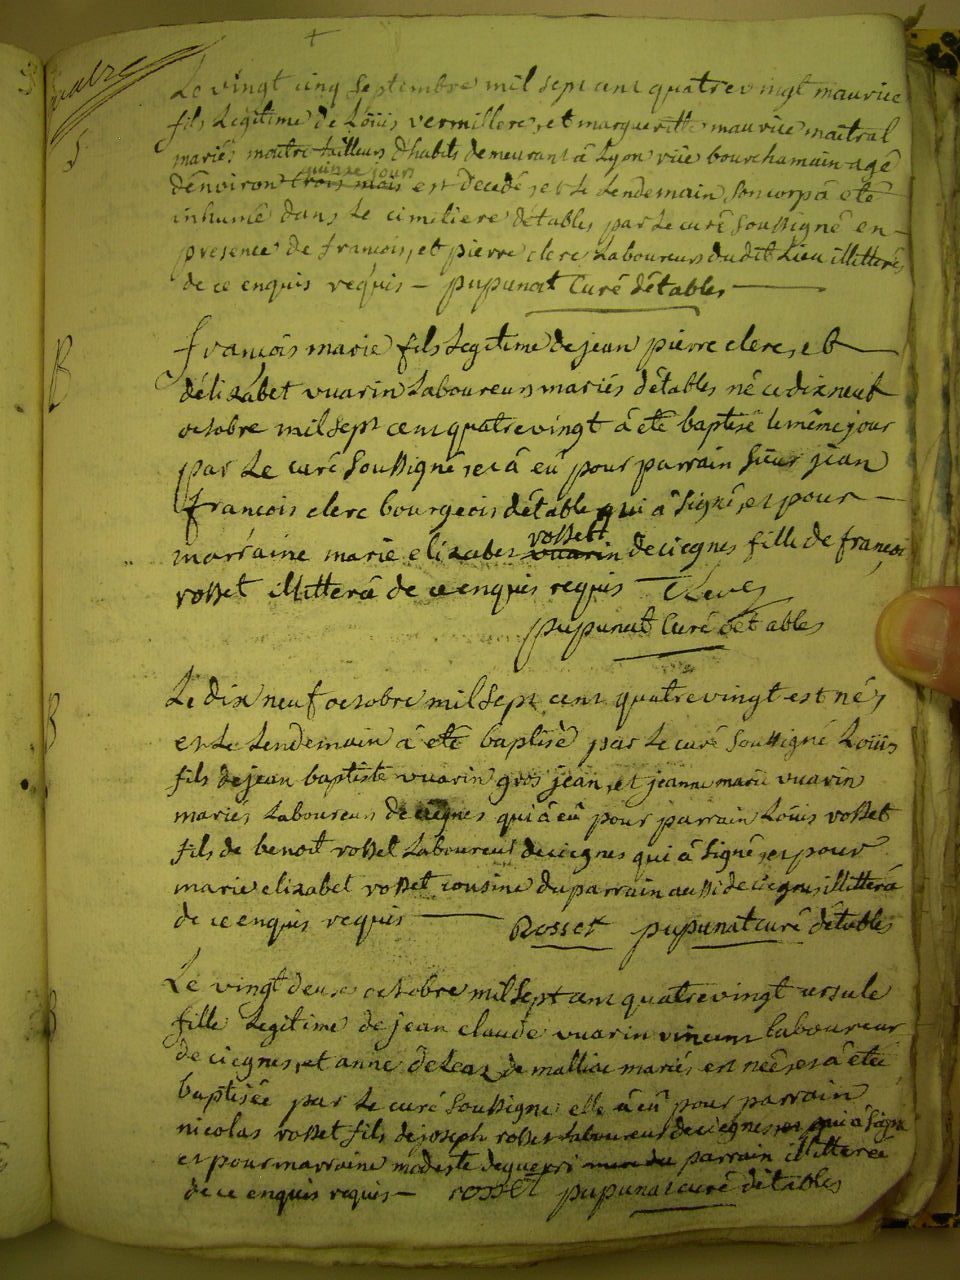 Le vingt cinq Septembre mil sept cent quatrevingt maurice
fils Legitime de Loüis vermillere, et margueritte maurice maitral
mariés maitre tailleurs d'habits demeurant à Lyon rüe bourchamain agé
d'environ trois mois quinze jours est decedé, et Le Lendemain Son corp à été
inhumé dans Le cimitiere d'étables par Le curé Soussigné en
presence de francois, et pierre clerc Laboureurs dudit Lieu illitterés
de ce enquis requis — pupunat Curé d'étables
B
francois marie fils Legitime de jean pierre clerc, et
d'élizabet vuarin Laboureurs mariés d'étables né ce dixneuf
octobre mil Sept cent quatrevingt à été baptisé le même jour
par Le curé Soussigné, et à eû pour parrain Sieur jean
francois clerc bourgeois d'étable qui à Signé, et pour
marraine marie elizabet vuarin rosset de ciegnes fille de francois
rosset illitterâ de ce enquis requis — Clerc
pupunat Curé d'etables
B
Le dix neuf octobre mil Sept cent quatrevingt est né,
et Le Lendemain à été baptisé par Le curé Soussigné Loüis
fils de jean baptiste vuarin gros jean, et jeanne marie vuarin
mariés Laboureurs de ciegnes qui à eû pour parrain Loüis rosset
fils de benoit rosset Laboureur de ciegnes qui à Signé, et pour
marie elizabet rosset cousine du parrain aussi de ciegnes illitterâ
de ce enquis requis — Rosset pupunat curé d'étables
B
Le vingt deux octobre mil Sept cent quatrevingt ursule
fille Legitime de jean claude vuarin vincent laboureur
de ciegnes, et anne deLeaz de malliac mariés est née, et à étée
baptisée par Le curé Soussigné elle à eû pour parrain
nicolas rosset fils de joseph rosset Laboureur de ciegnes qui à Signé
et pour marraine modeste parrain illitterée
de ce enquis requis — rosset pupunat curé d'étables